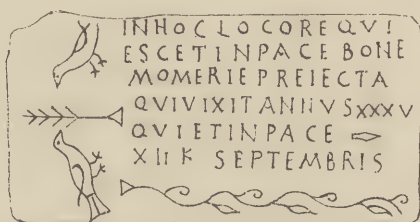 INHOCLOCOREQVI
ESCETINPACE BONE
MOMERIE PREIECTA
QVIVIXIT ANNVS XXXV
QVIETINPACE
XIIK SEPTEMBRIS